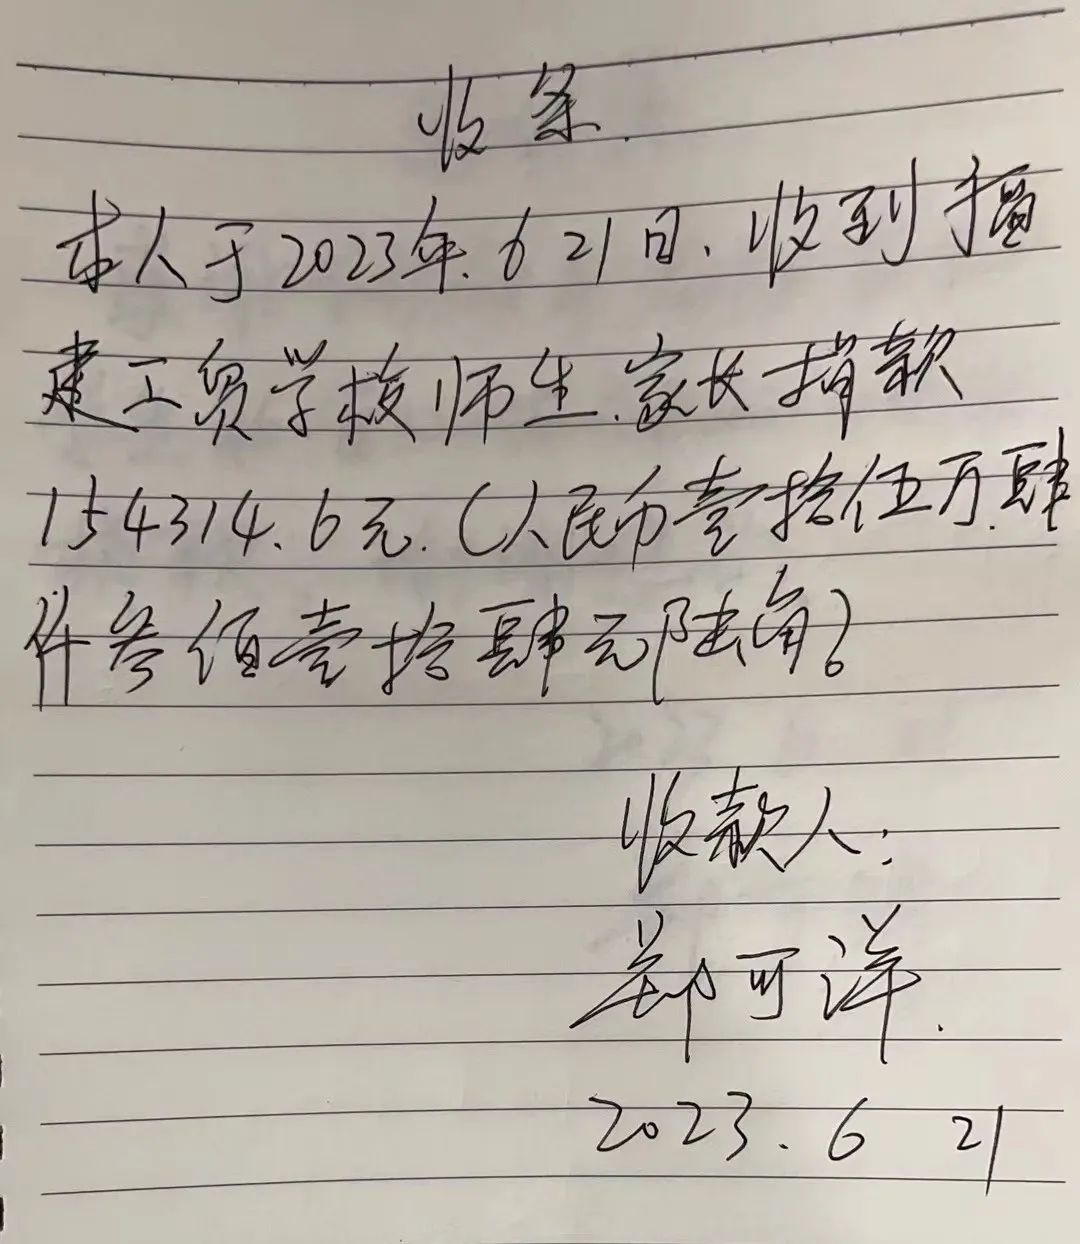 收条.
本人于2023年.6 21日、收到福
建工贸学校师生.家长捐款
154314.6元.(人民币壹拾伍万.肆
仟叁佰壹拾肆元陆角)
收款人:
郑可洋.
2023.6 21